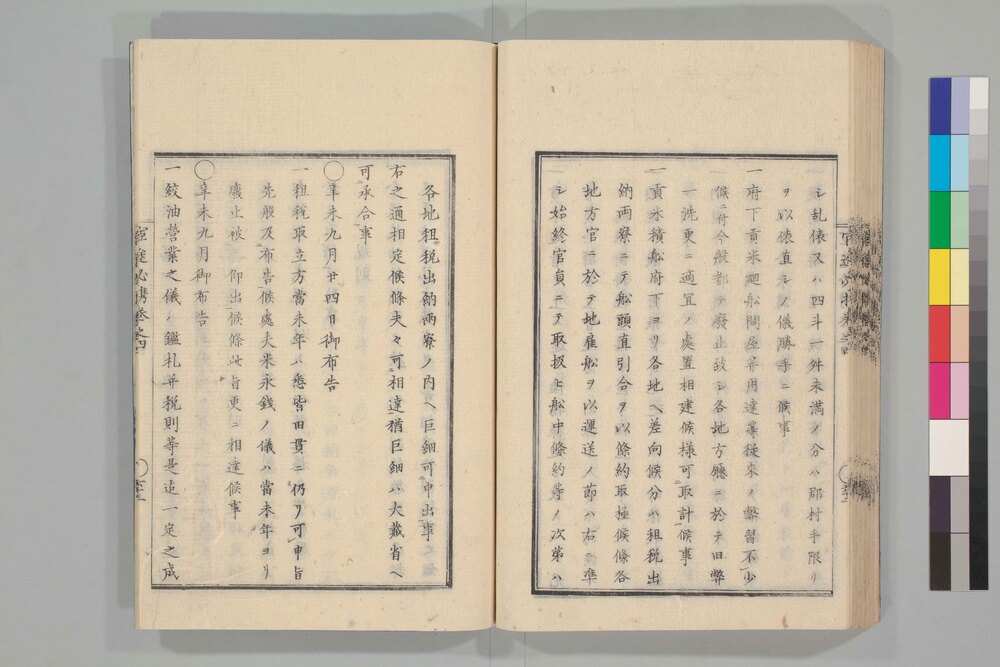 シ乱俵又ハ四斗一舛未満ノ分ハ郡村手限リ
ヲ以俵直シノ儀勝手ニ候事
一府下貢米廻船問屋并用達等従来ノ弊習不少
候ニ付今般都テ廃止致シ各地方廳ニ於テ旧弊
一洗更ニ適宜ノ處置相建候様可取計候事
一貢米積船府下ヨリ各地ヘ差向候分ハ租税出
納両寮ニテ船頭直引合ヲ以條約取極候條各
地方官ニ於テ地雇船ヲ以運送ノ節ハ右ニ準
シ始終官員ニテ取扱ヒ船中條約等ノ次第ハ
各地租税出納両寮ノ内ヘ巨細可申出事
右之通相定候條夫々可相達猶巨細ハ大蔵省ヘ
可承合事
〇辛未九月廿四日御布告
一租税取立方當未年ハ悉皆旧貫ニ仍リ可申旨
先般及布告候處夫米永銭ノ儀ハ當未年ヨリ
廢止被 仰出候條此旨更ニ相達候事
〇辛未九月御布告
一絞油営業之儀ハ鑑札并税則等是迠一定之成